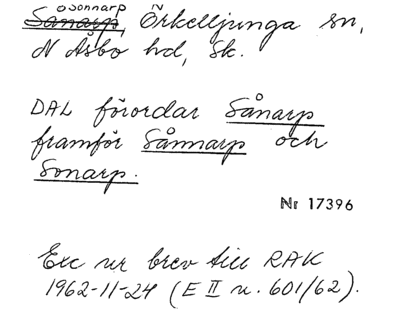 osonnarp
Sånarp, Örkelljunga sn,
N Åsbo hd, Sk.
DAL förordar Sånarp
framför Sånnarp och
Sonarp.
Nr 17396
Exc ur brev till RAK
1962-11-24 (E II u. 601/62).